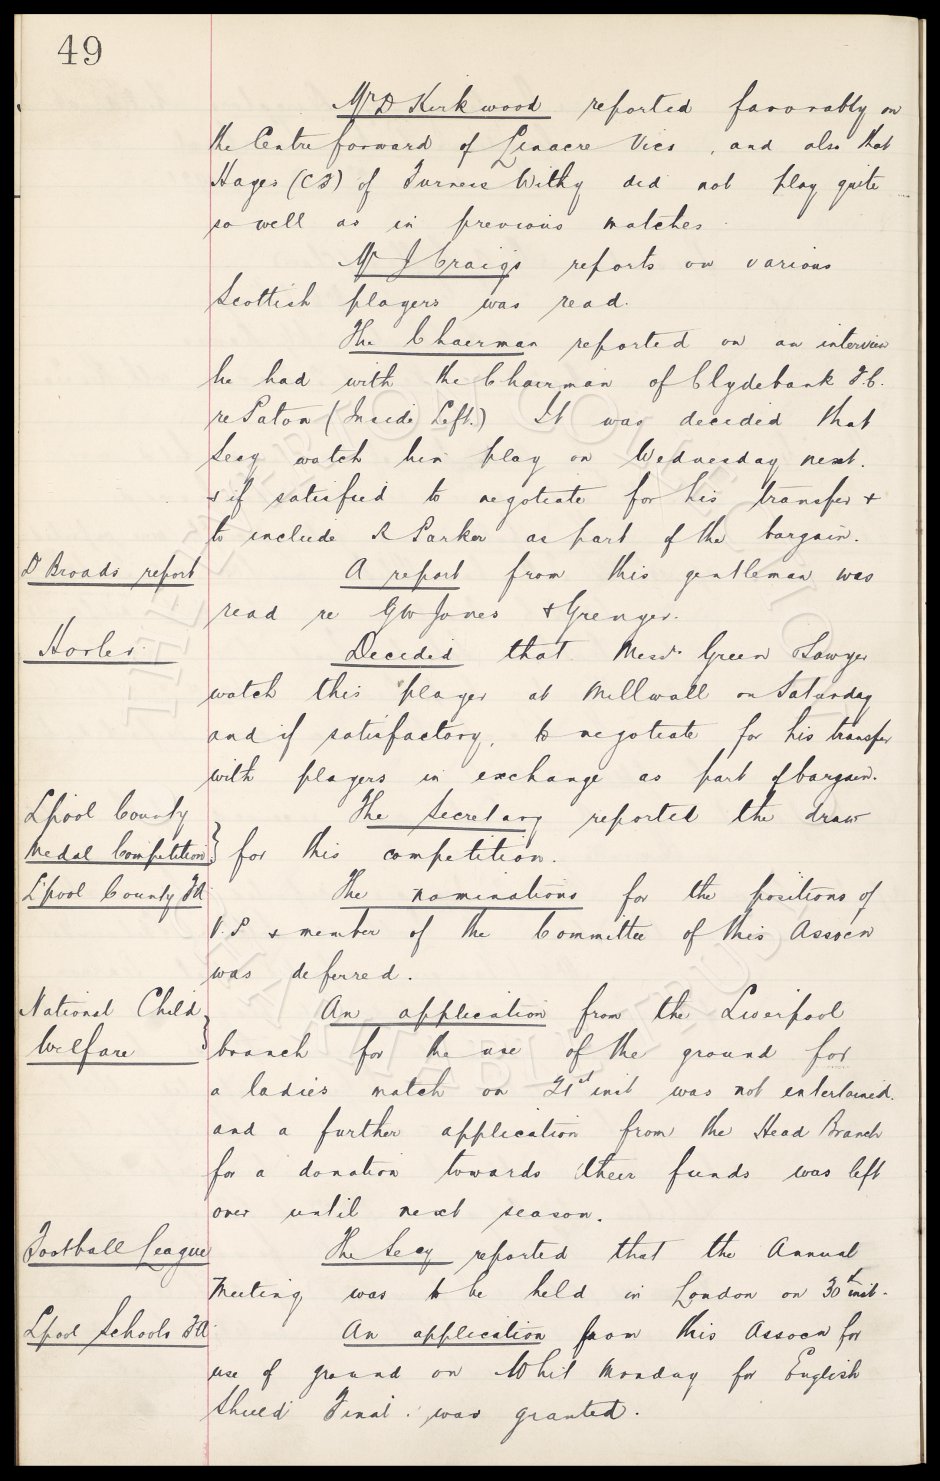 49
Mr D Kirkwood reported favorably on
the Centre forward of Linacre Vics, and also that
Hayes (CF) of Furness Withy did not play quite
so well as in previous matches
Mr J Craigs reports on various
Scottish players was read.
The Chairman reported on an interview
he had with the Chairman of Clydebank F.C.
re Paton (Inside Left.) It was decided that
Secy watch him play on Wednesday next.
& if satisfied to negotiate for his transfer &
to include R Parker as part of the bargain.
D Broads report A report from this gentleman was
read re GW Jones & Grenyer.
Horler. Decided that Messrs Green & Sawyer
watch this player at Millwall on Saturday
and if satisfactory, to negotiate for his transfer
with players in exchange as part of bargain.
Lpool County The Secretary reported the draw
Medal Competition } for this competition.
L'pool County FA The nominations for the positions of
V.P & member of the Committee of this Assocn
was deferred.
National Child An application from the Liverpool
Welfare } branch for the use of the ground for
a ladies match on 21st inst was not entertained.
and a further application from the Head Branch
for a donation towards their funds was left
over until next season.
Football League The Secy reported that the Annual
Meeting was to be held in London on 30th inst.
Lpool Schools FA An application from this Assocn for
use of ground on Whit Monday for English
Shield Final. was granted.